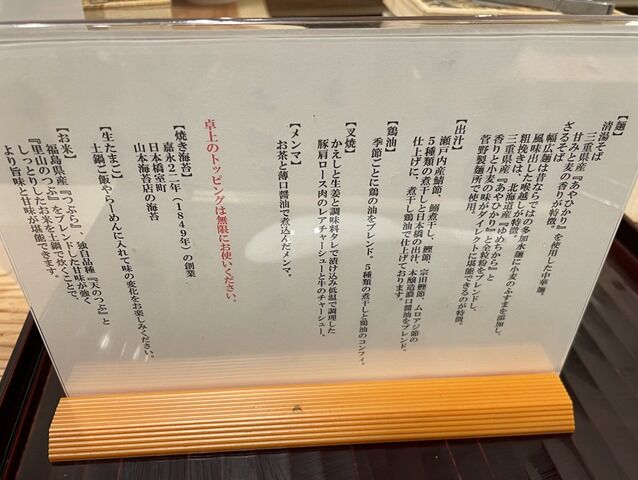 【麺】
清湯そば
三重県産『あやひかり』を使用した中華麺。
甘みと麦の香りが特徴。
ざるそば
幅広麺は昔ならではの多加水麺に小麦のふすまを添加し、
風味出した喉越しが特徴。
粗挽きは、北海道産『ゆめちから』と
三重県産『あやひかり』と全粒粉をブレンドし、
香りと小麦の味がダイレクトに堪能できるのが特徴。
菅野製麺所で使用。
【出汁】
瀬戸内産鯖節、鰯煮干し、鰹節、宗田鰹節、ムロアジ節の
５種類の煮干しと日本橋の出汁、本醸造濃口醤油をブレンド。
仕上げに、煮干し鶏油で仕上げております。
【鶏油】
季節ごとに鶏の油をブレンド。５種類の煮干しと鶏油のコンフィ。
【叉焼】
かえしと生姜と調味料タレで漬け込み低温で調理した
豚肩ロース肉のレアチャーシューと牛のチャーシュー。
【メンマ】
お茶と薄口醤油で煮込んだメンマ。
卓上のトッピングは無限にお使いください。
【焼き海苔】
嘉永２年（１８４９年）の創業
日本橋室町
山本海苔店の海苔
【生たまご】
土鍋ご飯やらーめんに入れて味の変化をお楽しみください。
【お米】
福島県産『つぶら』、独自品種『天のつぶ』と
『里山のつぶ』をブレンドした甘味が強く
しっとりしたお米を土鍋で炊くことで、
より旨味と甘味が堪能できます。